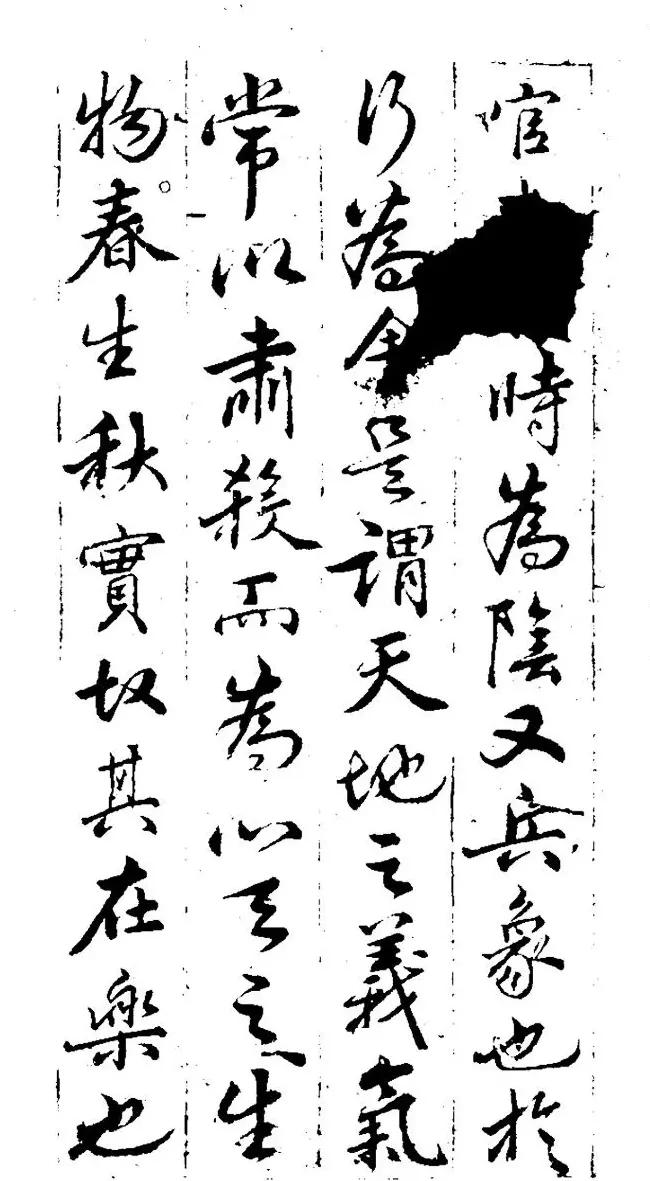 官時為陰又兵象也於
行為金是謂天地之義氣
常以肅殺而為心天之生
物春生秋實故其在樂也